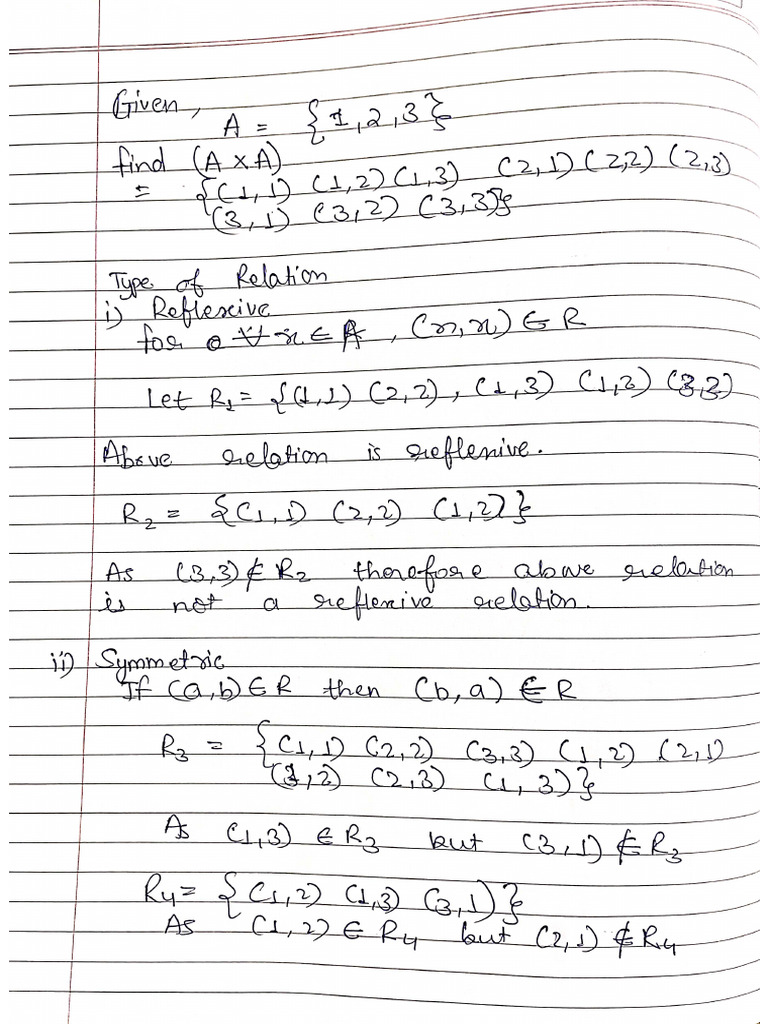 Given,
A = {1,2,3}
find (A×A)
= {(1,1) (1,2) (1,3) (2,1) (2,2) (2,3)
(3,1) (3,2) (3,3)}
Type of Relation
i) Reflexive
for ∀ x ∈ A, (x,x) ∈ R
Let R1 = {(1,1) (2,2), (1,3) (1,2) (3,3)
Above relation is reflexive.
R2 = {(1,1) (2,2) (1,2)}
As (3,3) ∉ R2 therefore above relation
is not a reflexive relation.
ii) Symmetric
If (a,b) ∈ R then (b,a) ∈ R
R3 = {(1,1) (2,2) (3,3) (1,2) (2,1)
(3,2) (2,3) (1,3)}
As (1,3) ∈ R3 but (3,1) ∉ R3
R4 = {(1,2) (1,3) (3,1)}
As (1,2) ∈ R4 but (2,1) ∉ R4